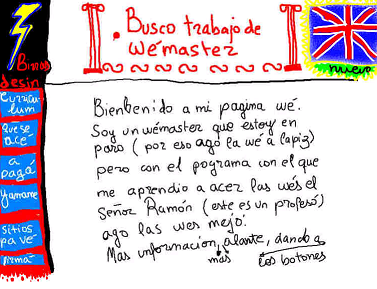 Busco trabajo de
wémaster
Birros
desin
nuevo
Curricu-
lum
que se
ace
a
pagá
Yamame
sitios
pa ve
firmá
Bienbenido a mi pagina wé.
Soy un wémaster que estoy en
paro (por eso ago la wé a lapiz)
pero con el pograma con el que
me aprendio a acer las wés el
Señor Ramón (este es un profesó)
ago las wes mejó.
Mas informacion, alante, dando a
más los botones